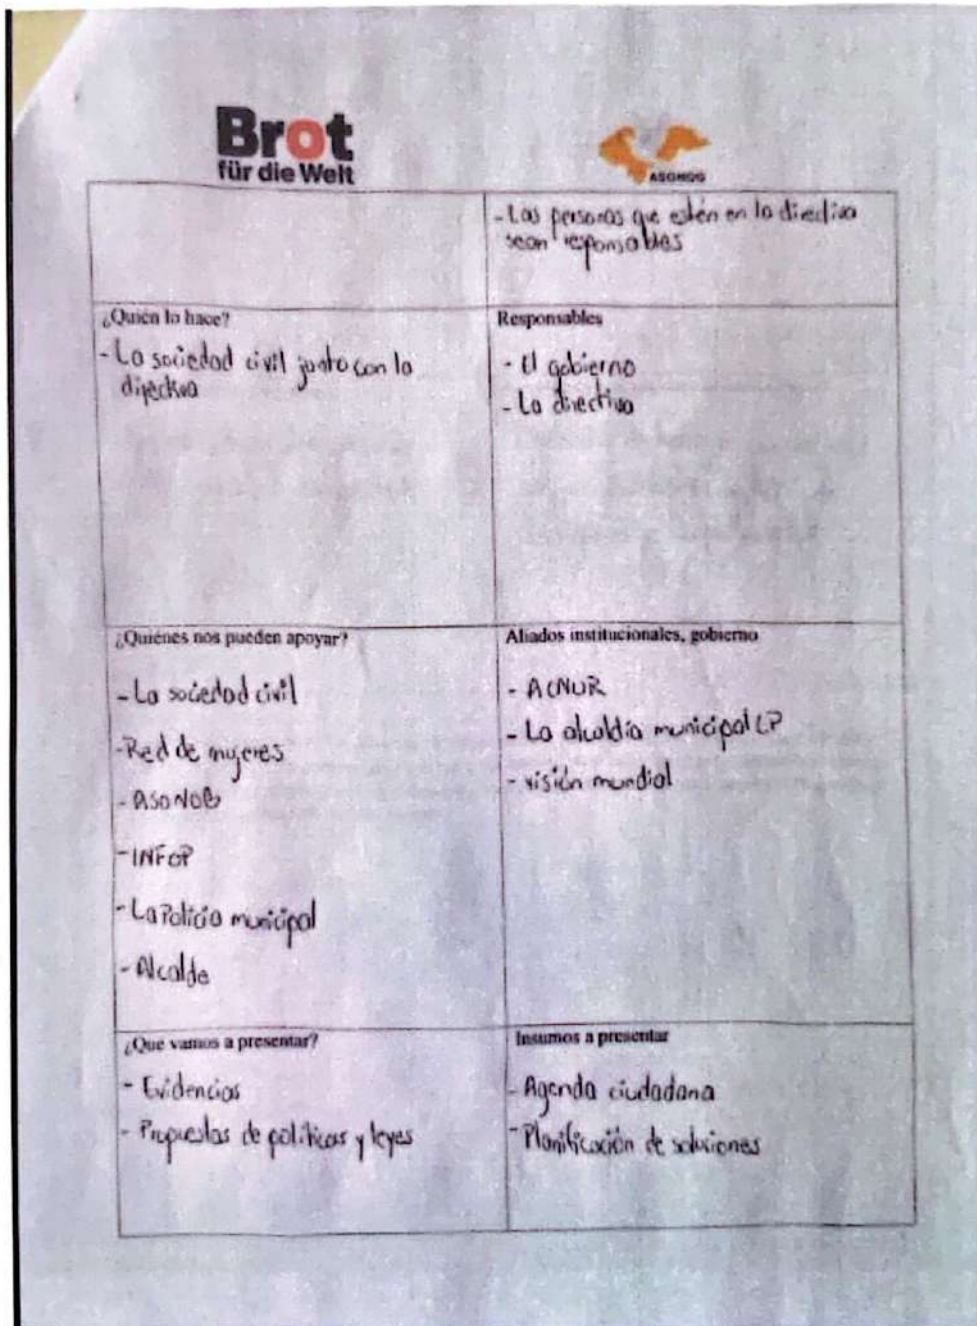 Brot
für die Welt
ASONOG
- Las personas que estén en la directiva
sean responsables
¿Quién lo hace?
- La sociedad civil junto con la
directiva
Responsables
- El gobierno
- La directiva
¿Quiénes nos pueden apoyar?
- La sociedad civil
- Red de mujeres
- ASONOG
- INFOP
- La Policia municipal
- Alcalde
Aliados institucionales, gobierno
- ACNUR
- La alcaldía municipal LP
- visión mundial
¿Que vamos a presentar?
- Evidencias
- Propuestas de políticas y leyes
Insumos a presentar
- Agenda ciudadana
- Planificación de soluciones